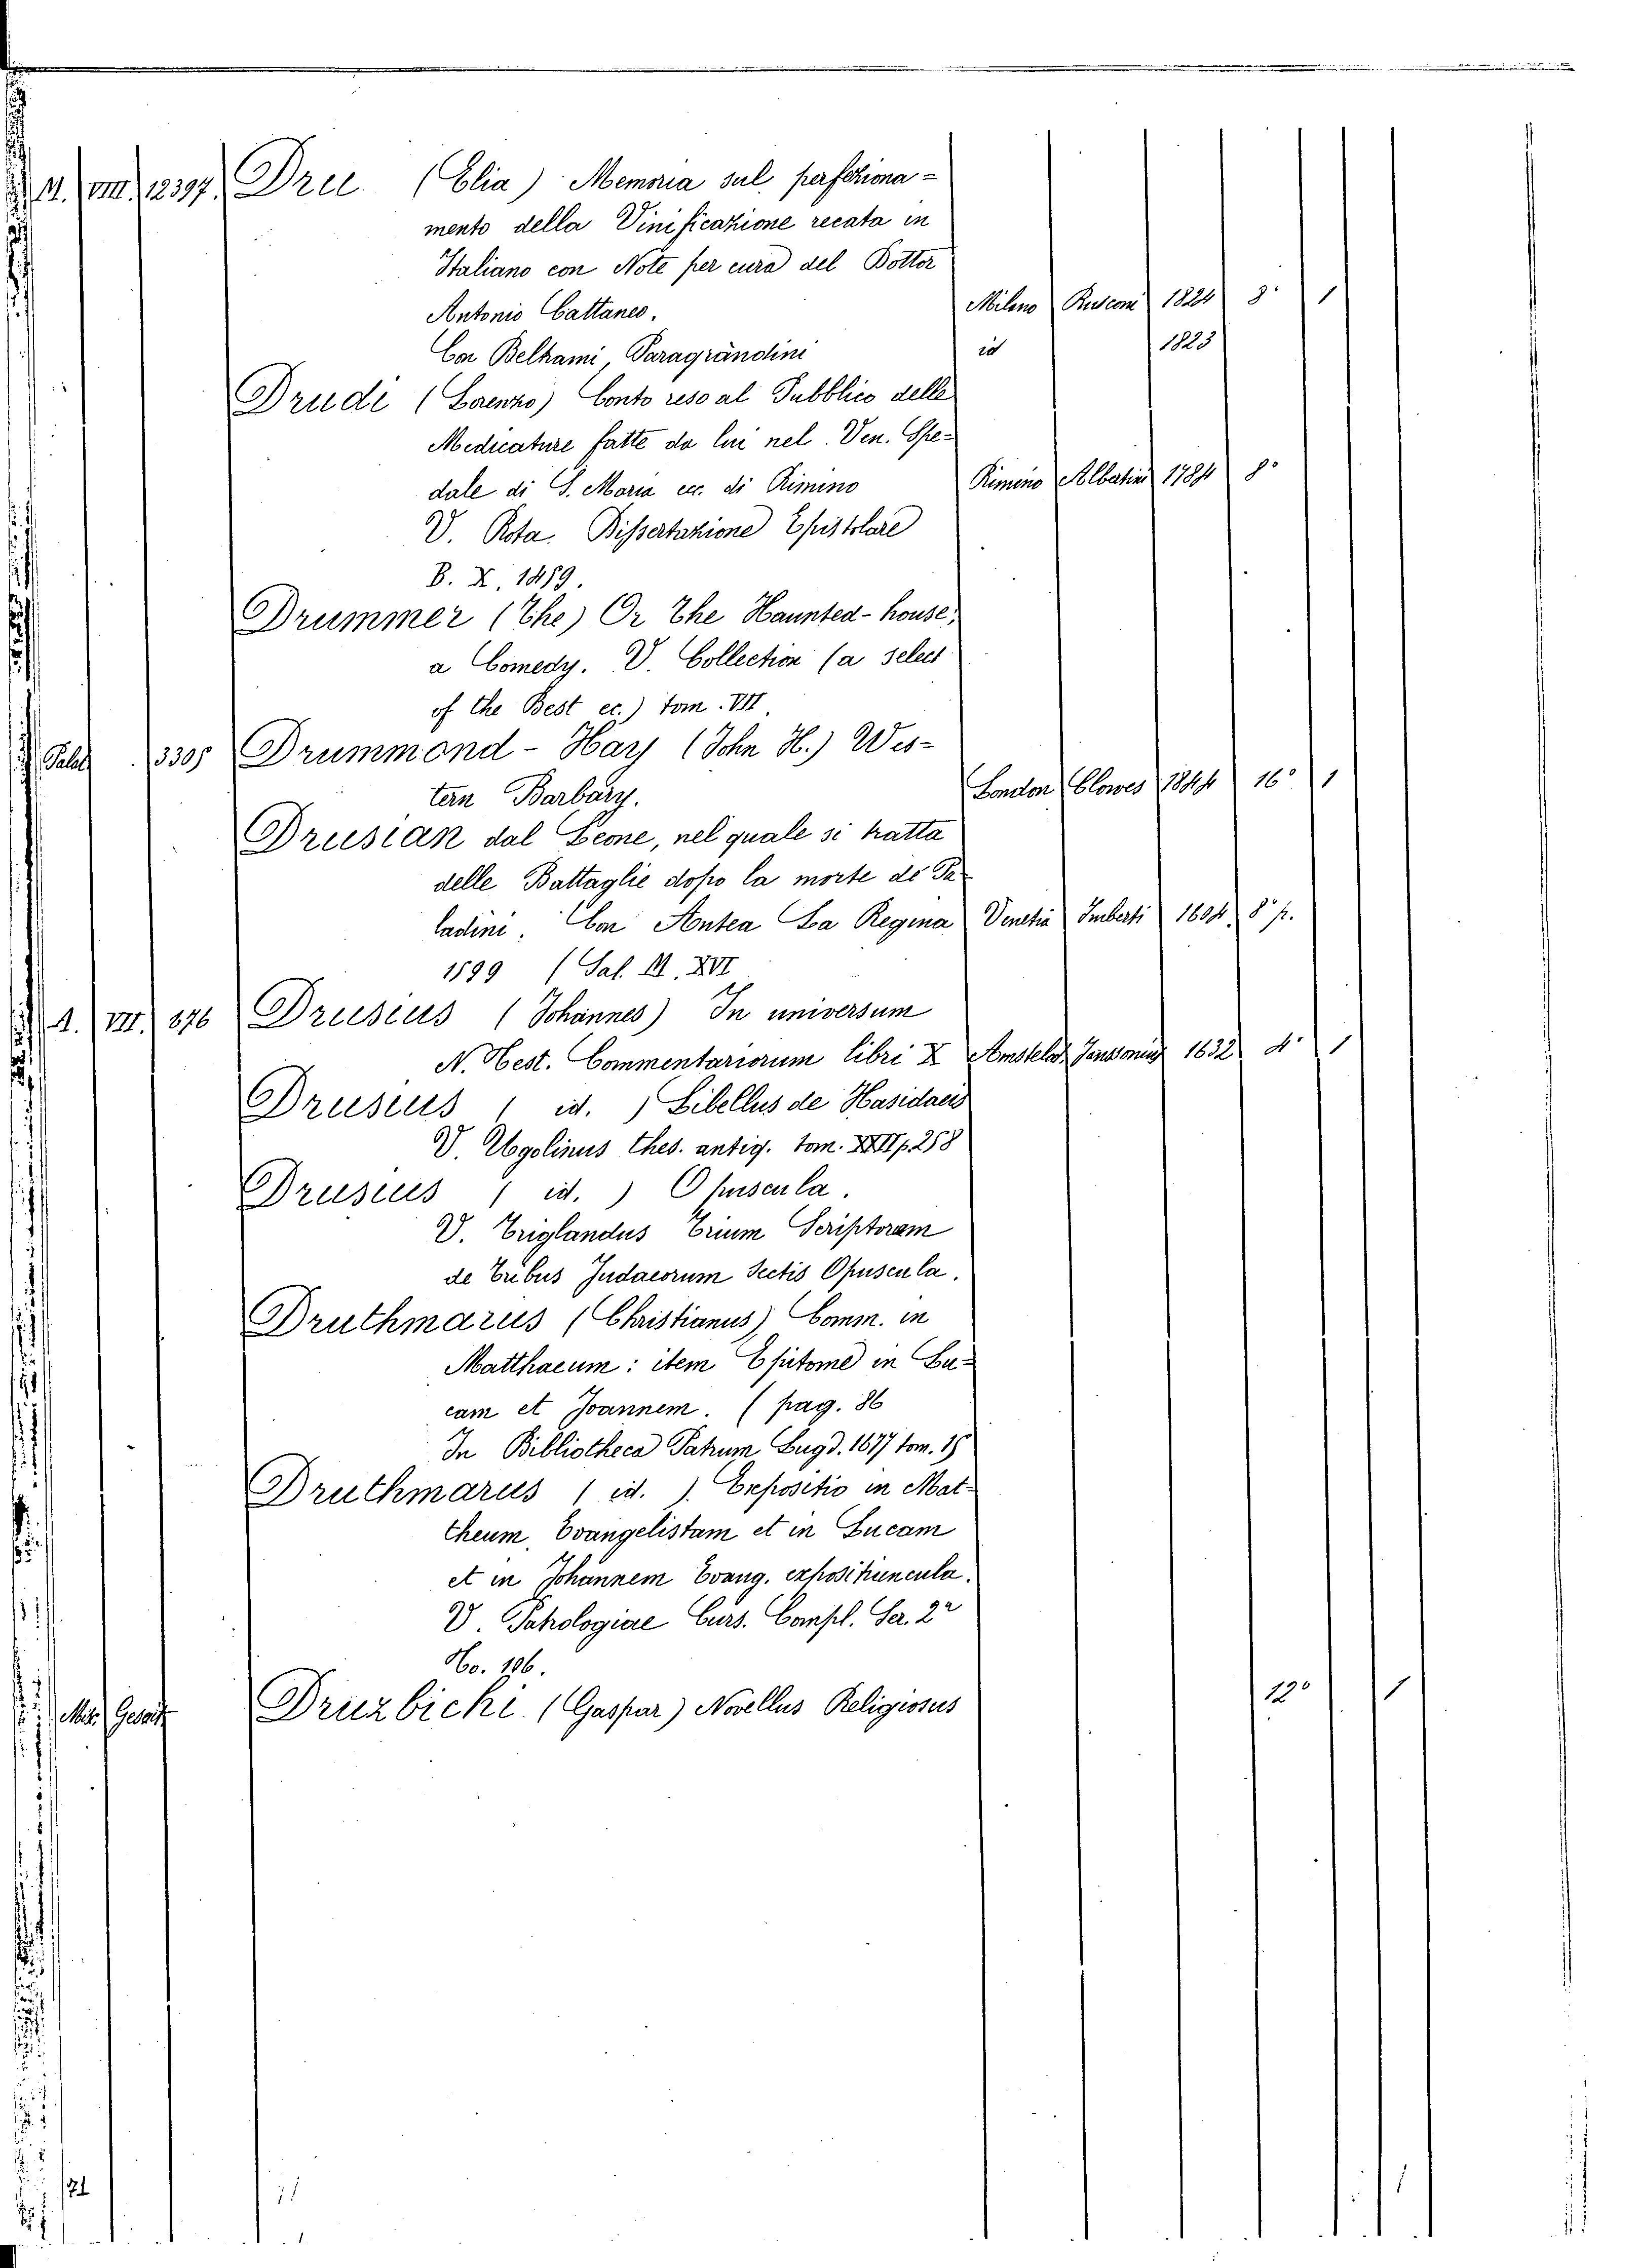 A. VIII. 12397. Dru (Elia) Memoria sul perfeziona-
mento della Vinificazione recata in
Italiano con Note per cura del Dottor
Antonio Cattaneo. Milano Rusconi 1824 8° 1
Con Beltrami, Paragrandini id 1823
Drudi (Lorenzo) Conto reso al Pubblico delle
Medicature fatte da lui nel Ven. Spe-
dale di S. Maria ec. di Rimino Rimino Albertini 1784 8°
V. Rota. Dissertazione Epistolare
B. X. 1489.
Drummer (The) Or The Haunted-house,
a Comedy. V. Collection (a select
of the Best ec.) tom. VII.
Palat 3305 Drummond-Hay (John H.) Wes-
tern Barbary. London Clowes 1844 16° 1
Drusian dal Leone, nel quale si tratta
delle Battaglie dopo la morte de Pa-
ladini. Con Antea La Regina Venetia Imberti 1604 8° p.
1599 (Sal. M. XVI
A. VII. 876 Drusius (Johannes) In universum
N. Test. Commentariorum libri X Amstelod. Janssonius 1632 4° 1
Drusius (id.) Libellus de Hasidaeis
V. Ugolinus thes. antiq. tom. XXII p. 258
Drusius (id.) Opuscula.
V. Triglandus Trium Scriptorum
de tribus Judaeorum Sectis Opuscula.
Druthmarus (Christianus) Comm. in
Matthaeum: item Epitome in Lu-
cam et Joannem. (pag. 86
In Bibliotheca Patrum Lugd. 1677 tom. 15
Druthmarus (id.). Expositio in Mat-
theum Evangelistam et in Lucam
et in Johannem Evang. expositiuncula.
V. Patrologiae Curs. Compl. Ser. 2a
To. 106.
Druzbicki (Gaspar) Novellus Religiosus 12° 1